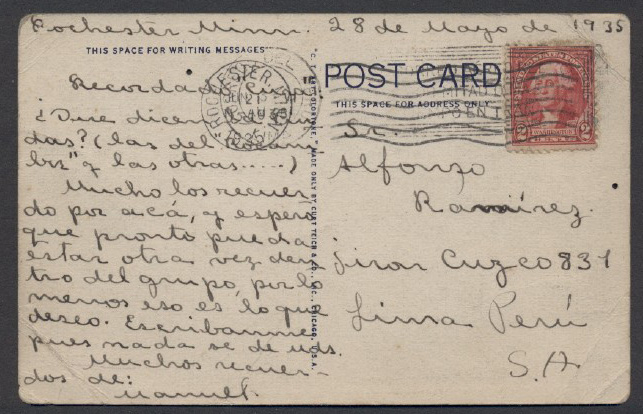 Rochester Minn. 28 de Mayo de 1935
THIS SPACE FOR WRITING MESSAGES
Recordado
¿Que dicen
das? (las del
bis" y las otras.....)
Mucho los recuer-
do por acá, y espero
que pronto pueda
estar otra vez den-
tro del grupo, por lo
menos eso es, lo que
deseo. Escribanme
pues nada se de uds.
Muchos recuer-
dos de:
Manuel.
"C. T. MADE ONLY BY CURT TEICH & CO., INC., CHICAGO, U.S.A.
ROCHESTER
1935
POST CARD
THIS SPACE FOR ADDRESS ONLY
2 WASHINGTON 2
Sr.
Alfonzo
Ramirez.
Jiron Cuzco 831
Lima Perú
S.A